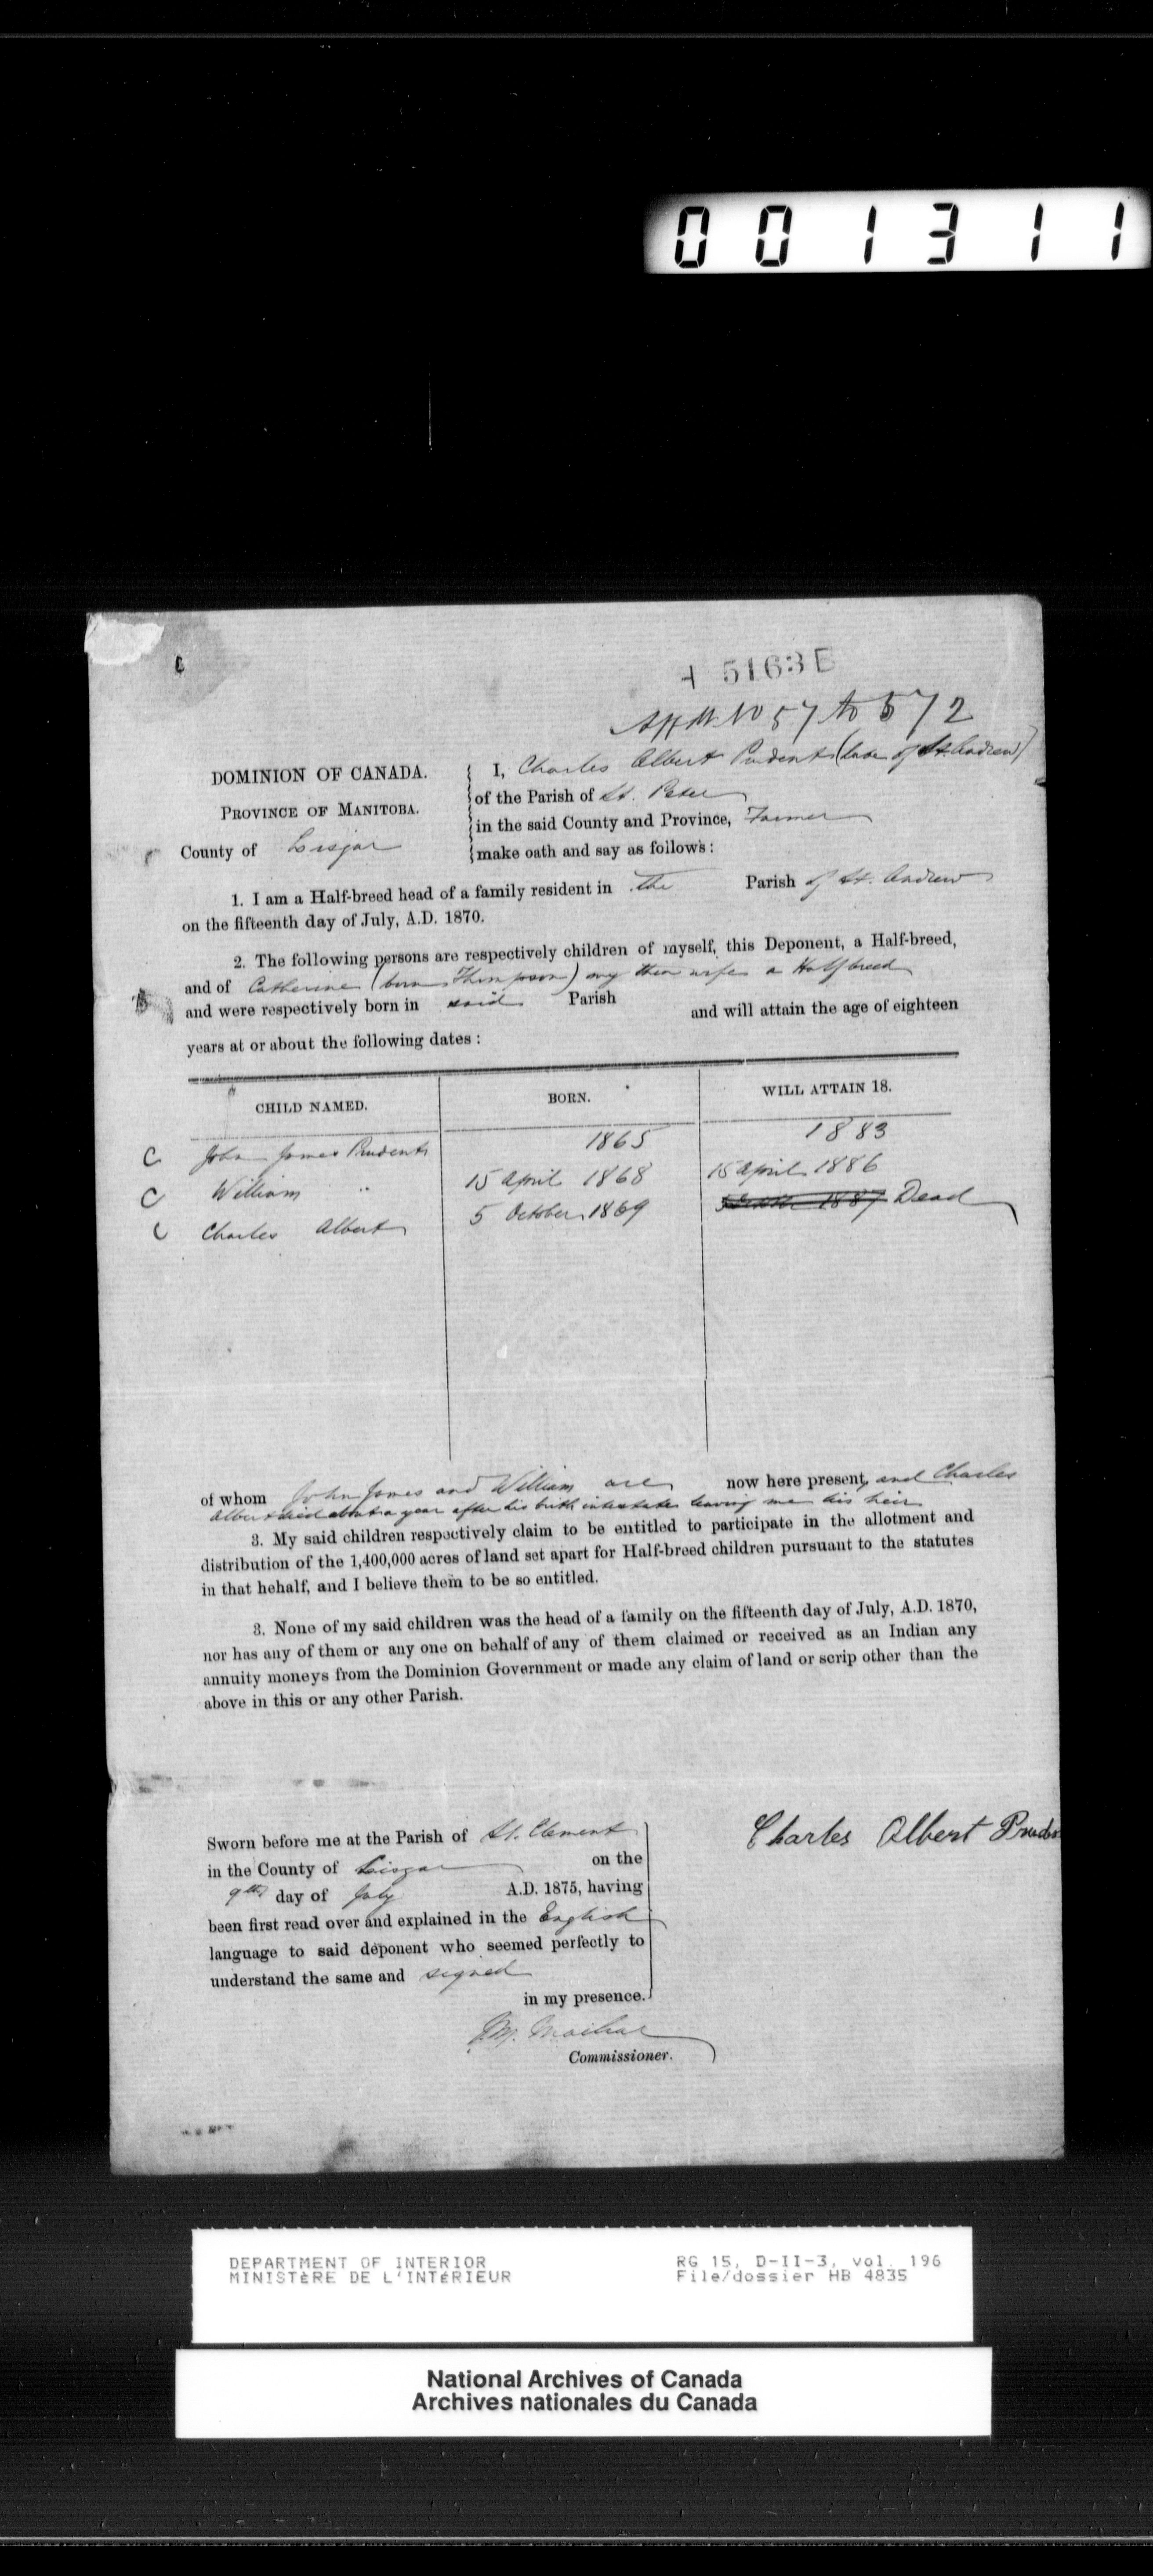 001311
5163E
to 572
DOMINION OF CANADA.
PROVINCE OF MANITOBA.
County of Lisgar
I, Charles Albert Prudent (late of St. Andrew)
of the Parish of St. Peter
in the said County and Province, Farmer
make oath and say as follows:
1. I am a Half-breed head of a family resident in the Parish of St. Andrew
on the fifteenth day of July, A.D. 1870.
2. The following persons are respectively children of myself, this Deponent, a Half-breed,
and of Catherine (born Thompson) my then wife a Halfbreed
and were respectively born in said Parish and will attain the age of eighteen
years at or about the following dates:
CHILD NAMED. BORN. WILL ATTAIN 18.
C John James Prudent 1865 1883
C William " 15 April 1868 15 April 1886
C Charles Albert 5 October 1869 1887 Dead
of whom John James and William are now here present, and Charles
Albert died about a year after his birth intestate leaving me his heir
3. My said children respectively claim to be entitled to participate in the allotment and
distribution of the 1,400,000 acres of land set apart for Half-breed children pursuant to the statutes
in that hehalf, and I believe them to be so entitled.
3. None of my said children was the head of a family on the fifteenth day of July, A.D. 1870,
nor has any of them or any one on behalf of any of them claimed or received as an Indian any
annuity moneys from the Dominion Government or made any claim of land or scrip other than the
above in this or any other Parish.
Sworn before me at the Parish of St. Clement
in the County of Lisgar on the
9th day of July A.D. 1875, having
been first read over and explained in the English
language to said deponent who seemed perfectly to
understand the same and signed
in my presence.
Charles Albert Pruden
Commissioner.
DEPARTMENT OF INTERIOR
MINISTÈRE DE L'INTÉRIEUR
RG 15, D-II-3, vol. 196
File/dossier HB 4835
National Archives of Canada
Archives nationales du Canada